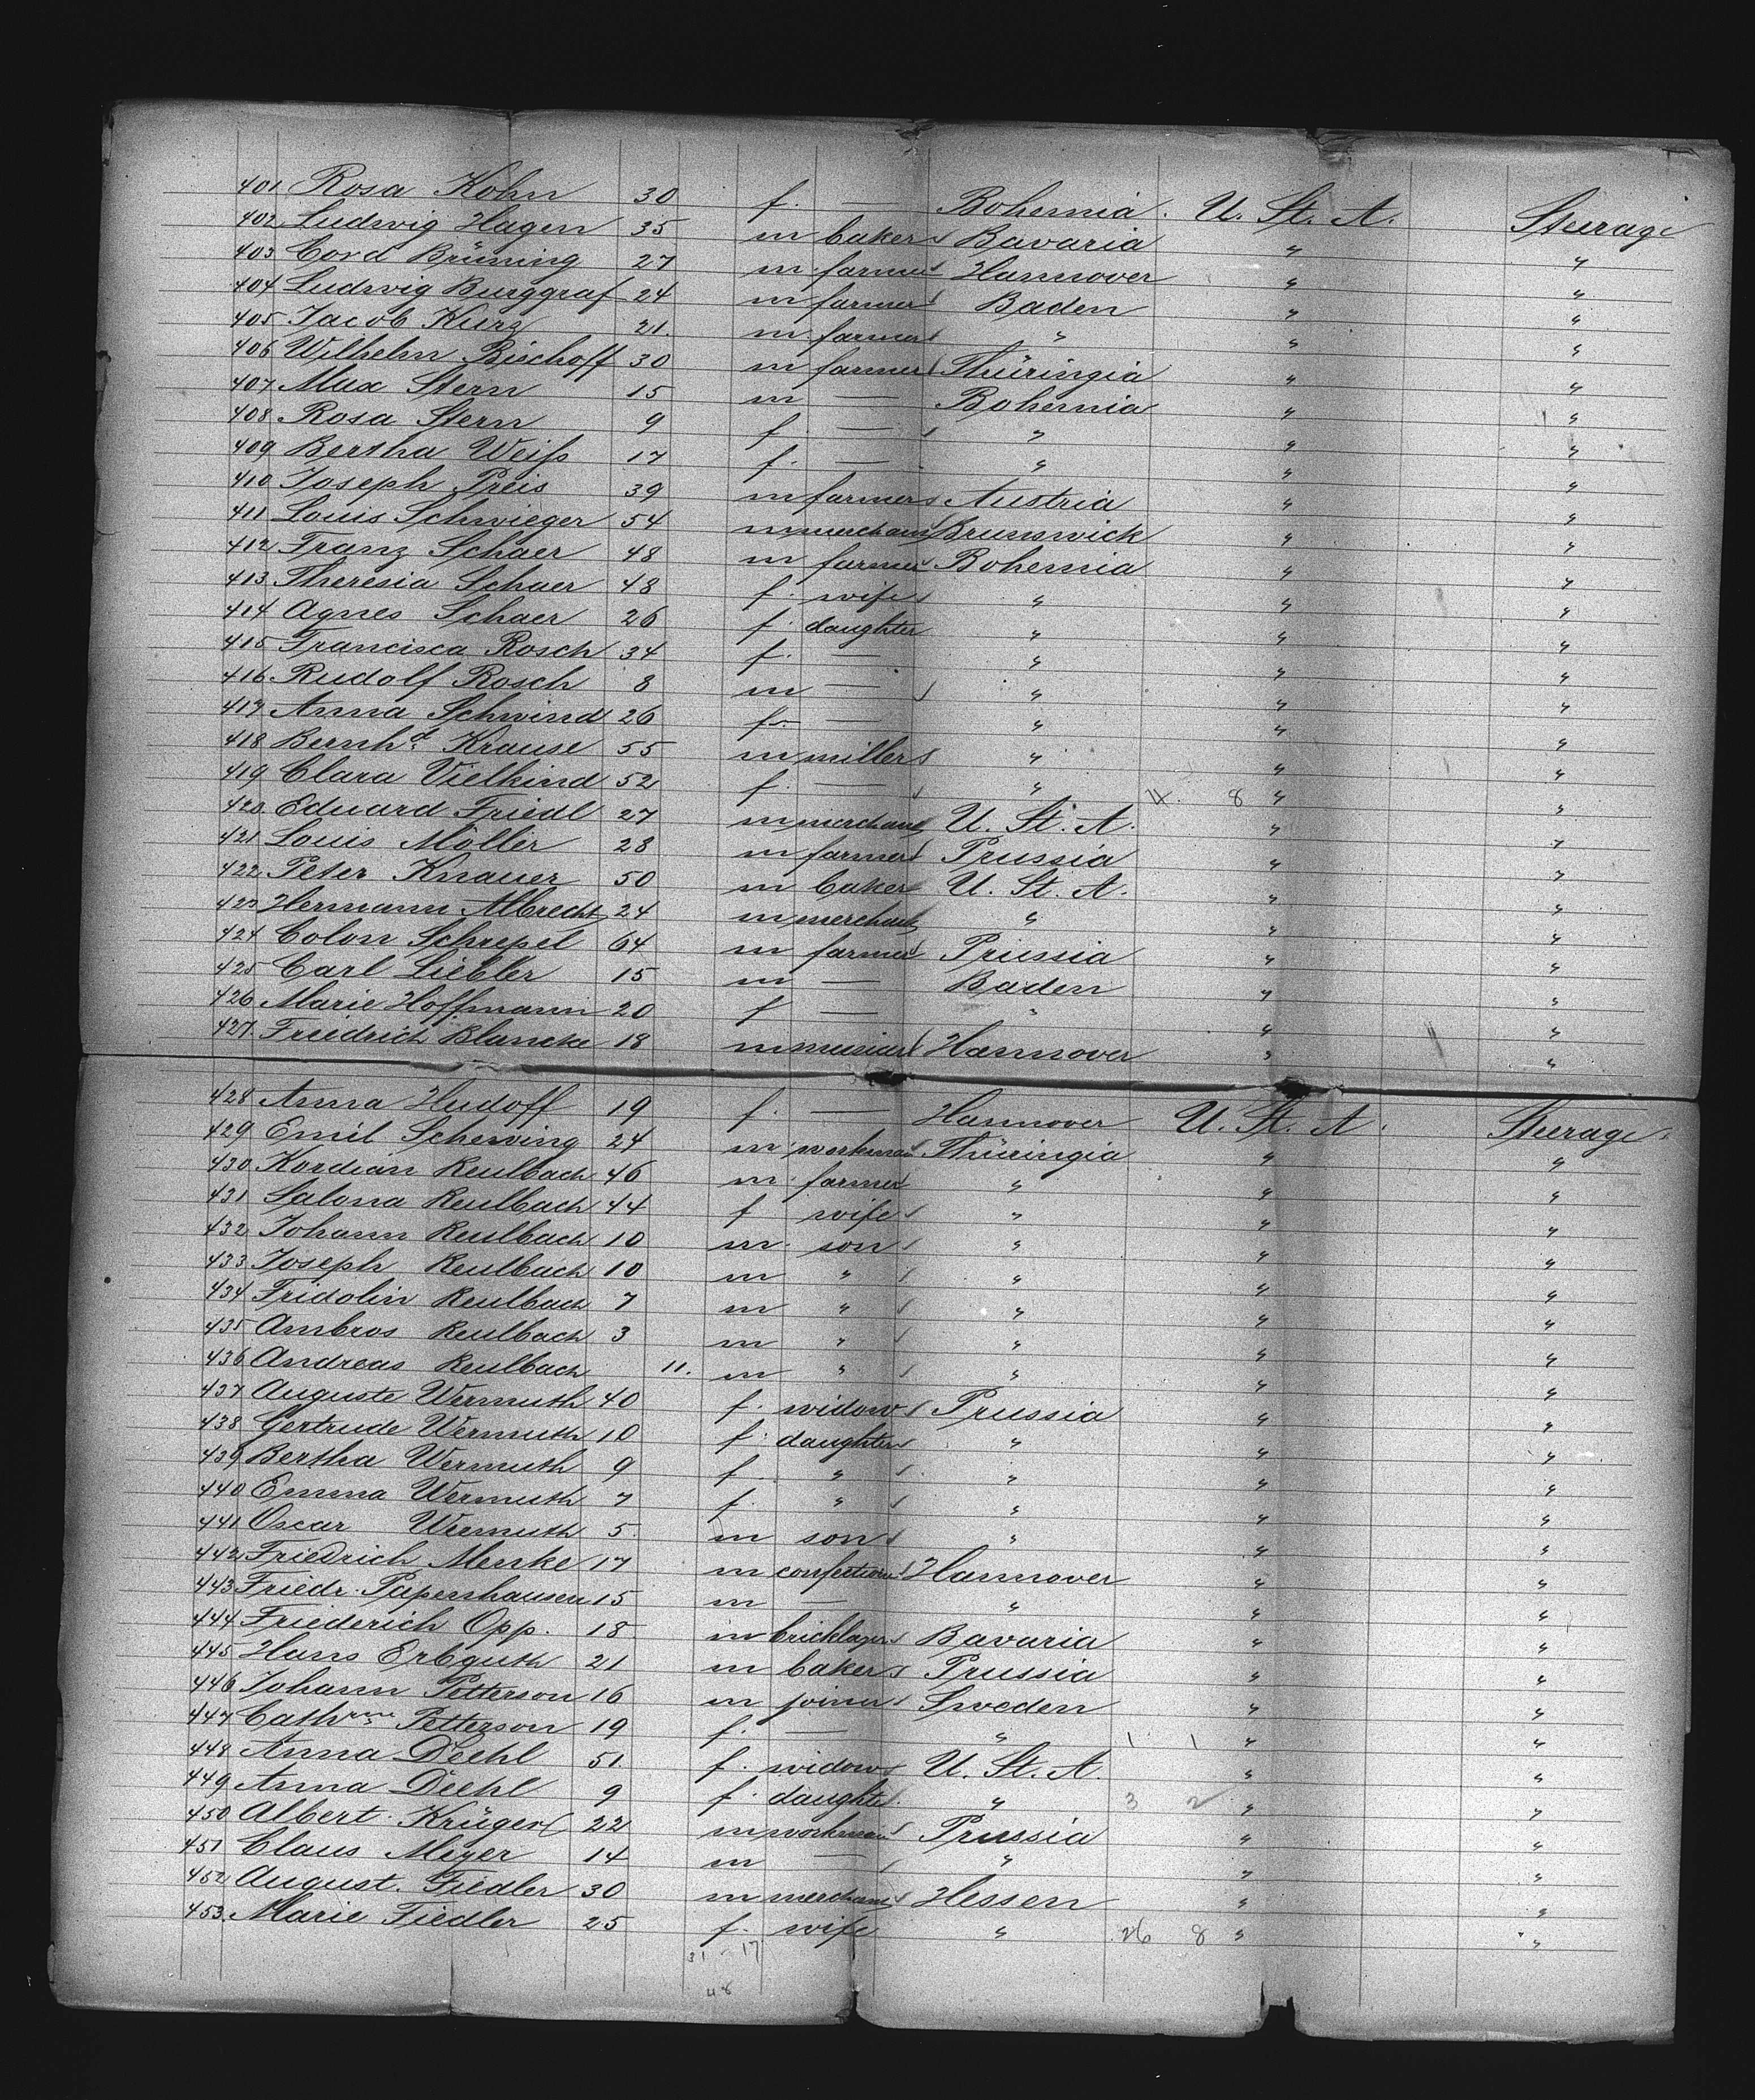 401 Rosa Kohn 30 f. — Bohemia. U. St. A. Steerage
402 Ludwig Hagen 35 m baker Bavaria " "
403 Cord Brüning 27 m farmer Hannover " "
404 Ludwig Burggraf 24 m farmer Baden " "
405 Jacob Kurz 21. m farmer " " "
406 Wilhelm Bischoff 30 m farmer Thüringia " "
407 Max Stern 15 m — Bohemia " "
408 Rosa Stern 9 f. — " " "
409 Bertha Weiſs 17 f. — " " "
410 Joseph Preis 39 m farmer Austria " "
411 Louis Schwieger 54 m merchant Brunswick " "
412 Franz Schaer 48 m farmer Bohemia " "
413 Theresia Schaer 48 f. wife " " "
414 Agnes Schaer 26 f. daughter " " "
415 Francisca Rosch 34 f. — " " "
416 Rudolf Rosch 8 m — " " "
417 Anna Schwind 26 f. — " " "
418 Bernhd. Krause 55 m miller " " "
419 Clara Vielkind 52 f. — " 8 " "
420 Eduard Friedl 27 m merchant U. St. A. " "
421 Louis Möller 28 m farmer Prussia " "
422 Peter Knauer 50 m baker U. St. A. " "
423 Hermann Albrecht 24 m merchant " " "
424 Colon Schrepel 64 m farmer Prussia " "
425 Carl Liebler 15 m — Baden " "
426 Marie Hoffmann 20 f — " " "
427. Friedrich Blancke 18 m Hannover " "
428 Anna Hudoff 19 f. — Hannover U. St. A. Steerage.
429 Emil Scherving 24 m workman Thüringia " "
430 Kordian Reulbach 46 m. farmer " " "
431 Salona Reulbach 44 f wife " " "
432 Johann Reulbach 10 m. son " " "
433 Joseph Reulbach 10 m " " " "
434 Fridolin Reulbach 7 m " " " "
435 Ambros Reulbach 3 m " " " "
436 Andreas Reulbach 11. m " " " "
437 Auguste Wermuth 40 f. widow Prussia " "
438 Gertrude Wermuth 10 f. daughter " " "
439 Bertha Wermuth 9 f. " " " "
440 Emma Wermuth 7 f. " " " "
441 Oscar Wermuth 5. m son " " "
442 Friedrich Menke 17 m Hannover " "
443 Friedr. Papenhausen 15 m — " " "
444 Friederich Opp. 18 m bricklayer Bavaria " "
445 Hans Erbguth 21 m baker Prussia " "
446 Johann Petterson 16 m joiner Sweden " "
447 Cathrine Petterson 19 f. — " 1 1 " "
448 Anna Deehl 51. f. widow U. St. A. " "
449 Anna Deehl 9 f. daughter " 3 2 " "
450 Albert Krüger 22 m workman Prussia " "
451 Claus Meyer 14 m — " " "
452 August. Fiedler 30 m merchant Hessen " "
453. Marie Fiedler 25 f. wife " 26 8 " "
31 - 17
48